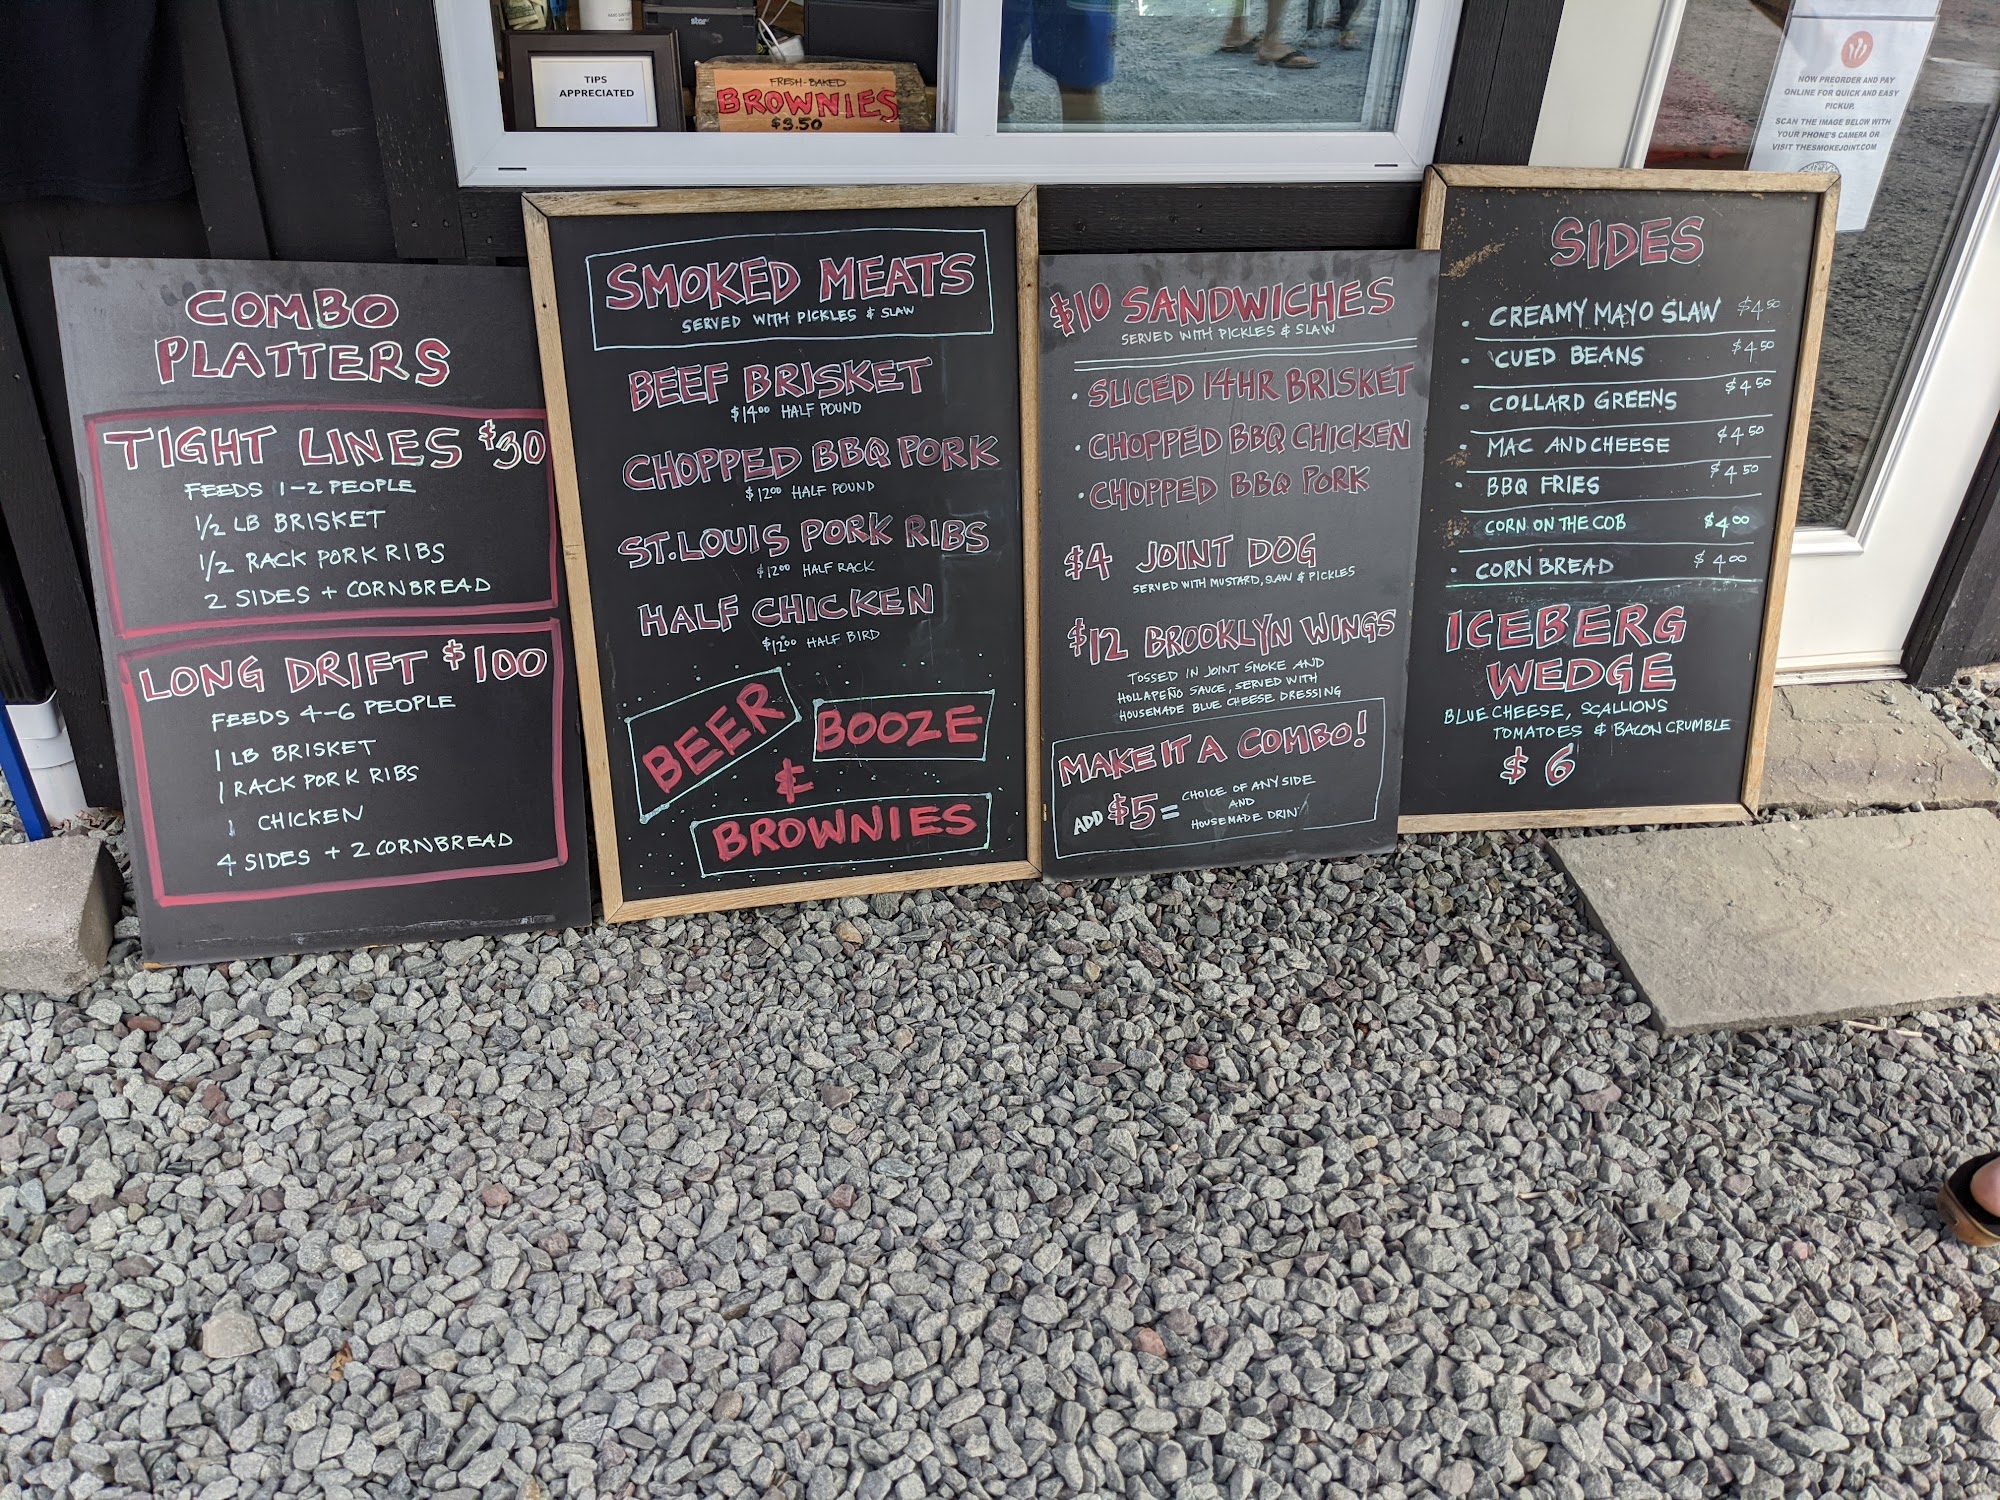 star
TIPS
APPRECIATED
FRESH-BAKED
BROWNIES
$3.50
NOW PREORDER AND PAY
ONLINE FOR QUICK AND EASY
PICKUP.
SCAN THE IMAGE BELOW WITH
YOUR PHONE'S CAMERA OR
VISIT THESMOKEJOINT.COM
COMBO
PLATTERS
TIGHT LINES $30
FEEDS 1-2 PEOPLE
1/2 LB BRISKET
1/2 RACK PORK RIBS
2 SIDES + CORNBREAD
LONG DRIFT $100
FEEDS 4-6 PEOPLE
1 LB BRISKET
1 RACK PORK RIBS
1 CHICKEN
4 SIDES + 2 CORNBREAD
SMOKED MEATS
SERVED WITH PICKLES & SLAW
BEEF BRISKET
$14.00 HALF POUND
CHOPPED BBQ PORK
$12.00 HALF POUND
ST. LOUIS PORK RIBS
$12.00 HALF RACK
HALF CHICKEN
$12.00 HALF BIRD
BEER
BOOZE
&
BROWNIES
$10 SANDWICHES
SERVED WITH PICKLES & SLAW
• SLICED 14HR BRISKET
• CHOPPED BBQ CHICKEN
• CHOPPED BBQ PORK
$4 JOINT DOG
SERVED WITH MUSTARD, SLAW & PICKLES
$12 BROOKLYN WINGS
TOSSED IN JOINT SMOKE AND
HOLLAPEÑO SAUCE, SERVED WITH
HOUSEMADE BLUE CHEESE DRESSING
MAKE IT A COMBO!
ADD $5 = CHOICE OF ANY SIDE
AND
HOUSEMADE DRIN
SIDES
• CREAMY MAYO SLAW $4.50
• 'CUED BEANS $4.50
• COLLARD GREENS $4.50
• MAC AND CHEESE $4.50
• BBQ FRIES $4.50
• CORN ON THE COB $4.00
• CORN BREAD $4.00
ICEBERG
WEDGE
BLUE CHEESE, SCALLIONS
TOMATOES & BACON CRUMBLE
$6